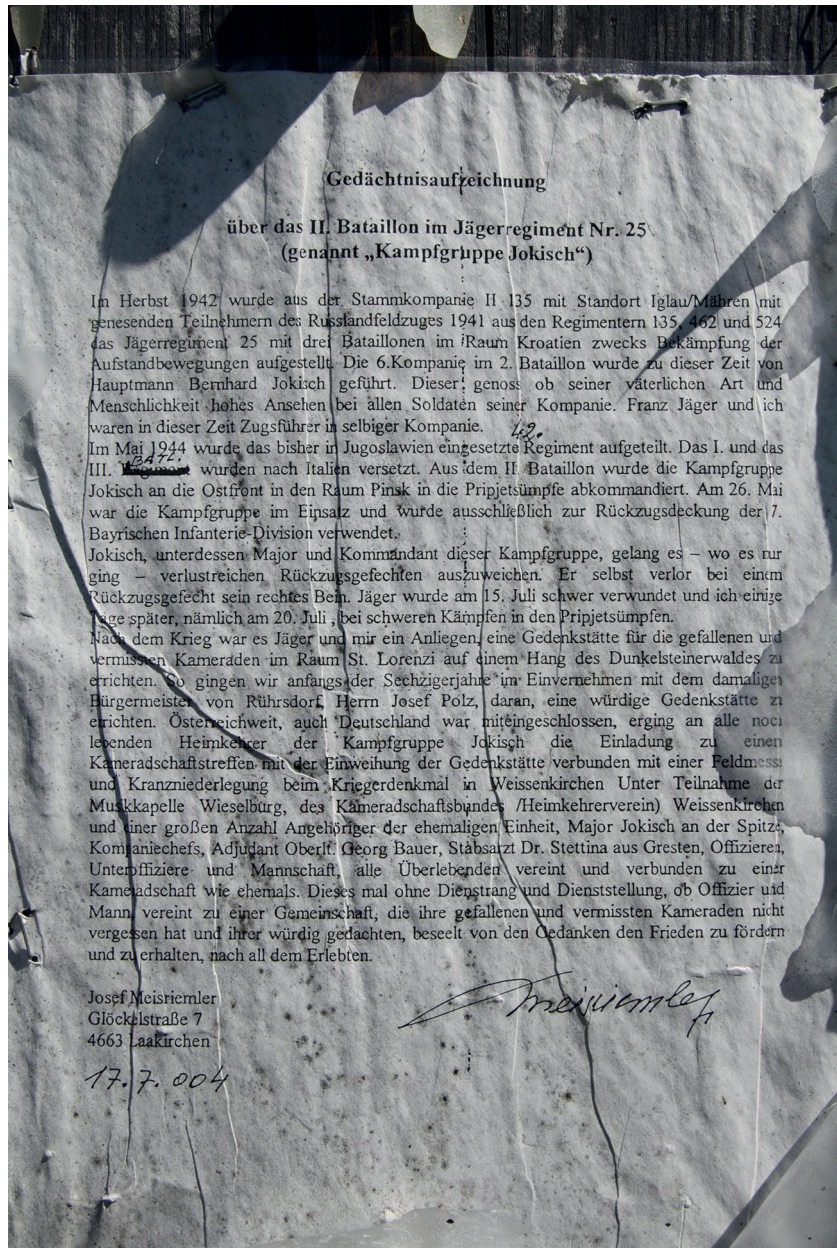 Gedächtnisaufzeichnung
über das II. Bataillon im Jägerregiment Nr. 25
(genannt „Kampfgruppe Jokisch“)
Im Herbst 1942 wurde aus der Stammkompanie II 135 mit Standort Iglau/Mähren mit
genesenden Teilnehmern des Russlandfeldzuges 1941 aus den Regimentern 135, 462 und 524
das Jägerregiment 25 mit drei Bataillonen im Raum Kroatien zwecks Bekämpfung der
Aufstandbewegungen aufgestellt. Die 6.Kompanie im 2. Bataillon wurde zu dieser Zeit von
Hauptmann Bernhard Jokisch geführt. Dieser genoss ob seiner väterlichen Art und
Menschlichkeit hohes Ansehen bei allen Soldaten seiner Kompanie. Franz Jäger und ich
waren in dieser Zeit Zugsführer in selbiger Kompanie.
42.
Im Mai 1944 wurde das bisher in Jugoslawien eingesetzte Regiment aufgeteilt. Das I. und das
BATL.
III. Regiment wurden nach Italien versetzt. Aus dem II. Bataillon wurde die Kampfgruppe
Jokisch an die Ostfront in den Raum Pinsk in die Pripjetsümpfe abkommandiert. Am 26. Mai
war die Kampfgruppe im Einsatz und wurde ausschließlich zur Rückzugsdeckung der 7.
Bayrischen Infanterie-Division verwendet.
Jokisch, unterdessen Major und Kommandant dieser Kampfgruppe, gelang es – wo es nur
ging – verlustreichen Rückzugsgefechten auszuweichen. Er selbst verlor bei einem
Rückzugsgefecht sein rechtes Bein. Jäger wurde am 15. Juli schwer verwundet und ich einige
Tage später, nämlich am 20. Juli , bei schweren Kämpfen in den Pripjetsümpfen.
Nach dem Krieg war es Jäger und mir ein Anliegen, eine Gedenkstätte für die gefallenen und
vermissten Kameraden im Raum St. Lorenzi auf einem Hang des Dunkelsteinerwaldes zu
errichten. So gingen wir anfangs der Sechzigerjahre im Einvernehmen mit dem damaligen
Bürgermeister von Rührsdorf, Herrn Josef Polz, daran, eine würdige Gedenkstätte zu
errichten. Österreichweit, auch Deutschland war miteingeschlossen, erging an alle noch
lebenden Heimkehrer der Kampfgruppe Jokisch die Einladung zu einen
Kameradschaftstreffen mit der Einweihung der Gedenkstätte verbunden mit einer Feldmesse
und Kranzniederlegung beim Kriegerdenkmal in Weissenkirchen Unter Teilnahme der
Musikkapelle Wieselburg, des Kameradschaftsbundes /Heimkehrerverein) Weissenkirchen
und einer großen Anzahl Angehöriger der ehemaligen Einheit, Major Jokisch an der Spitze,
Kompaniechefs, Adjudant Oberlt. Georg Bauer, Stabsarzt Dr. Stettina aus Gresten, Offizieren,
Unteroffiziere und Mannschaft, alle Überlebenden vereint und verbunden zu einer
Kameradschaft wie ehemals. Dieses mal ohne Dienstrang und Dienststellung, ob Offizier und
Mann, vereint zu einer Gemeinschaft, die ihre gefallenen und vermissten Kameraden nicht
vergessen hat und ihrer würdig gedachten, beseelt von den Gedanken den Frieden zu fördern
und zu erhalten, nach all dem Erlebten.
Josef Meisriemler
Meisriemler
Glöckelstraße 7
4663 Laakirchen
17.7.004